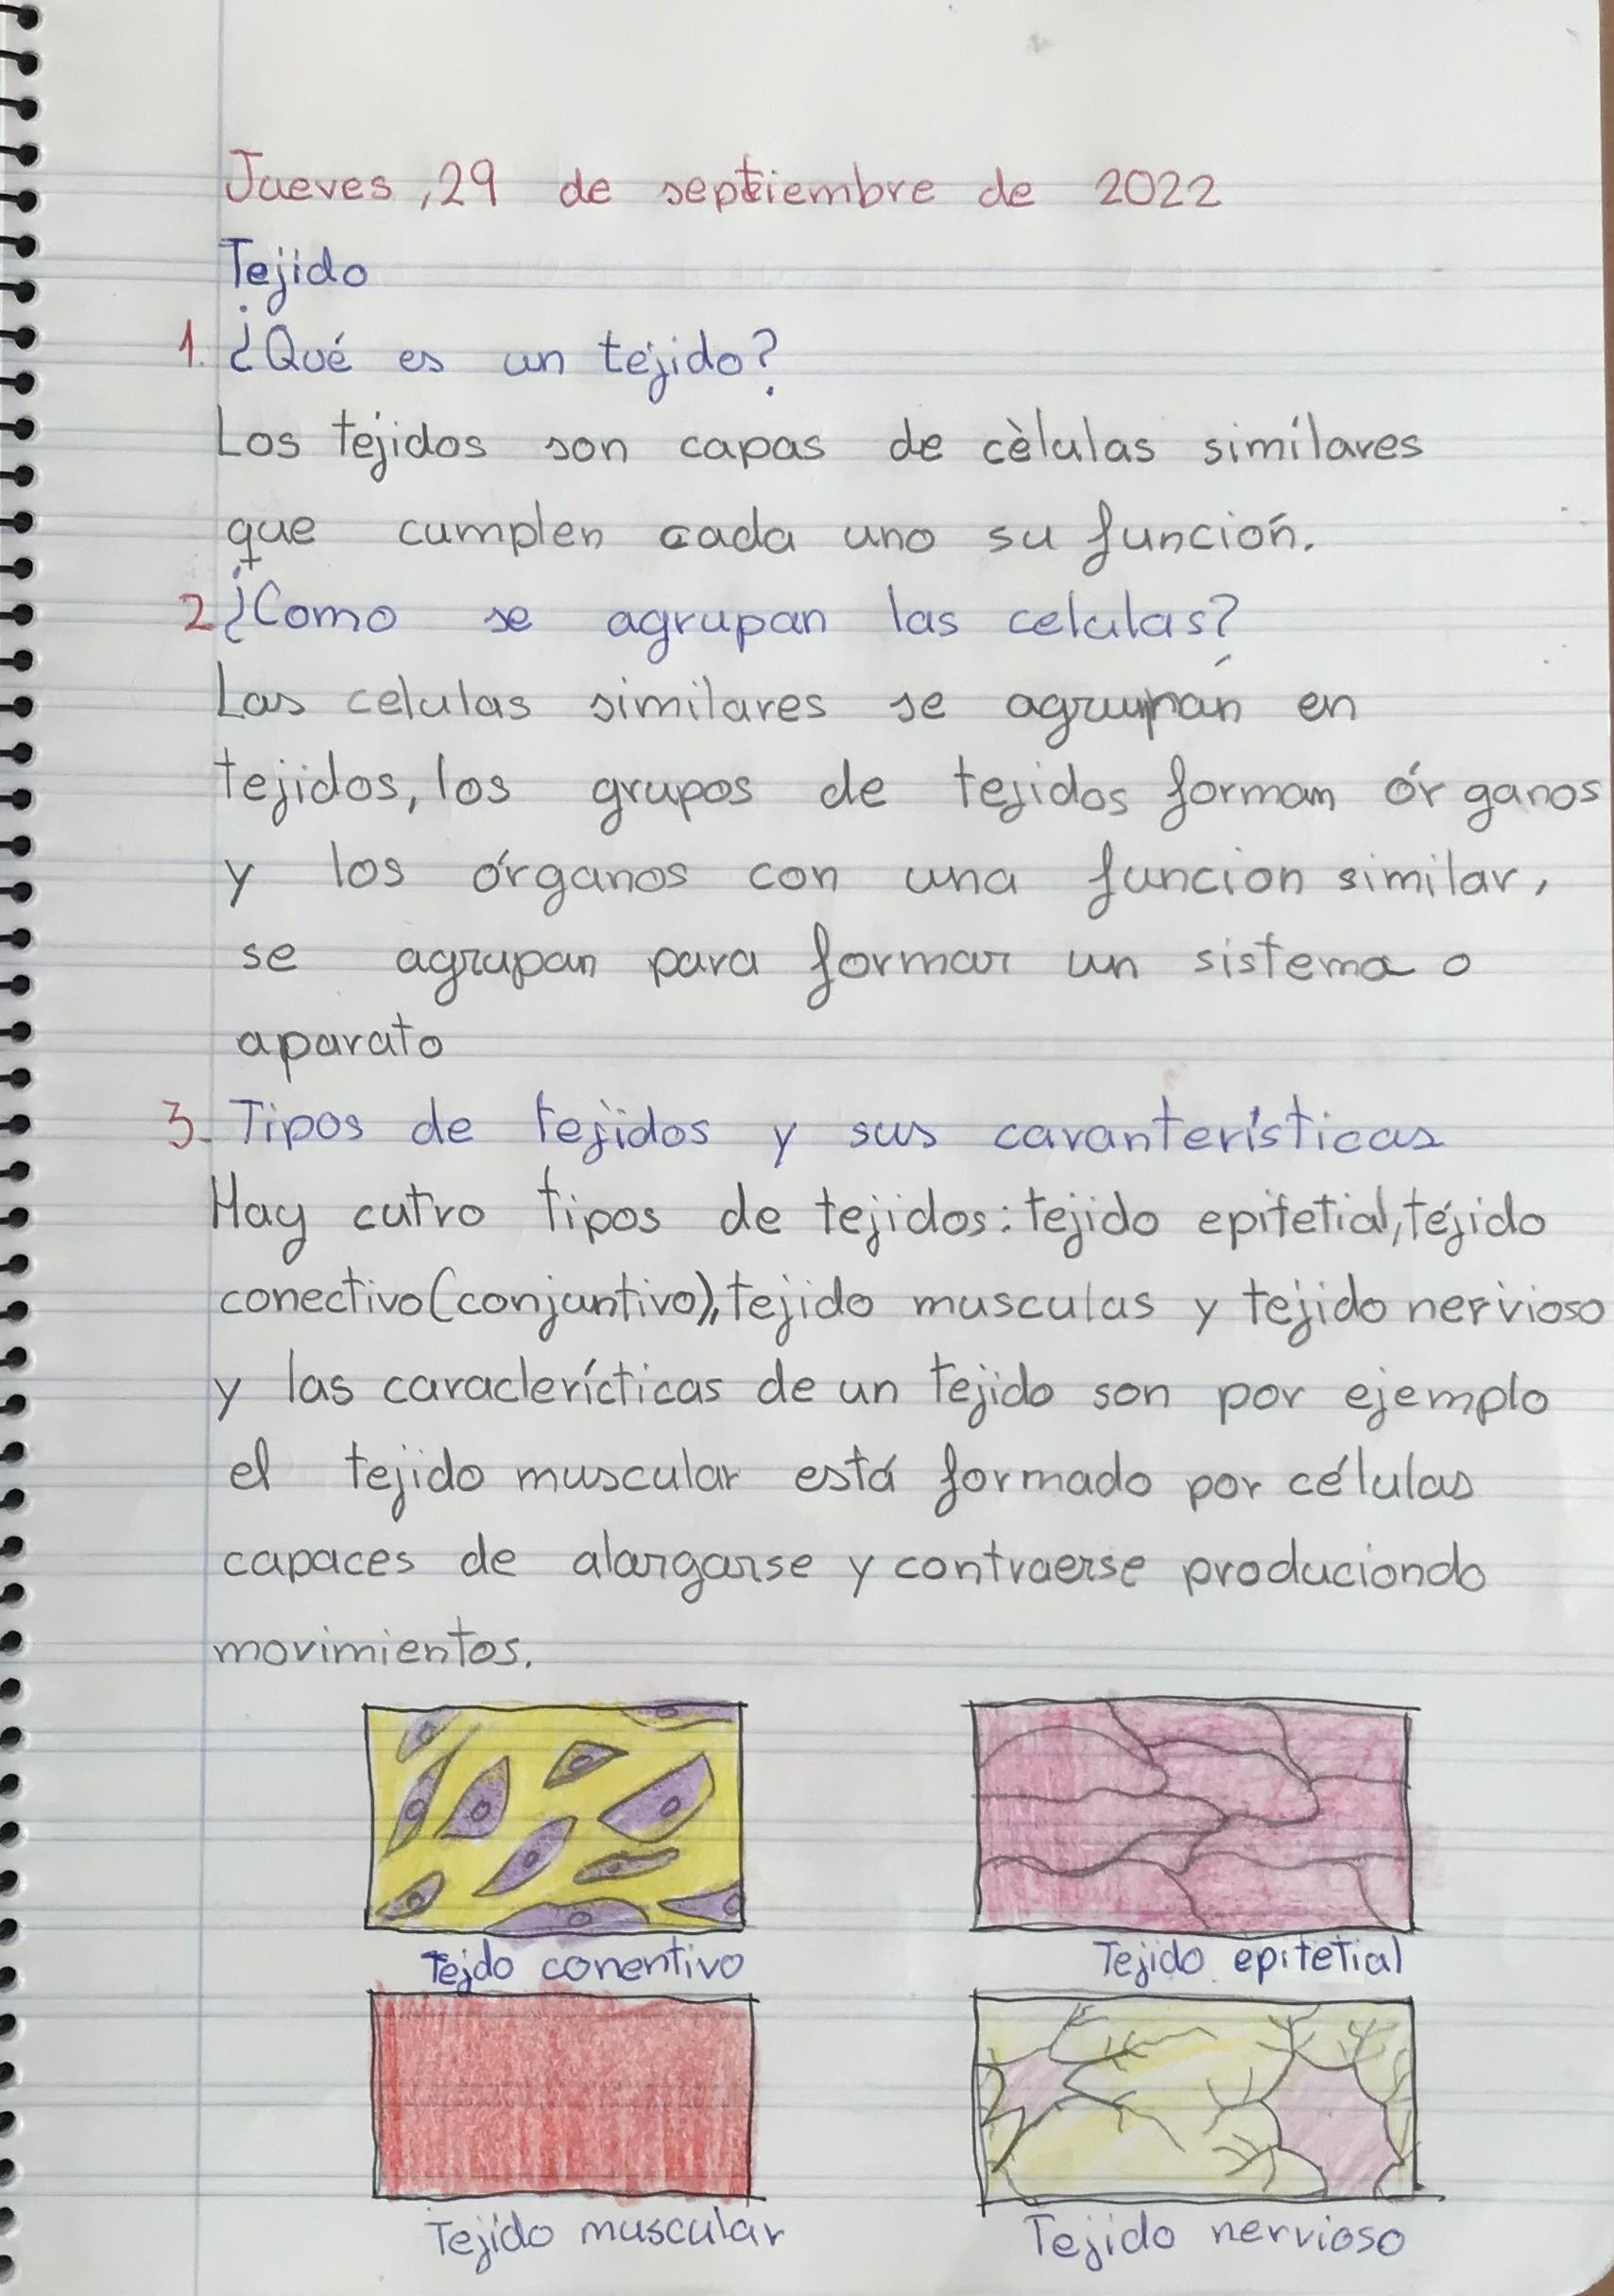 Jueves, 29 de septiembre de 2022
Tejido
1. ¿Qué es un tejido?
Los tejidos son capas de cèlulas similares
que cumplen cada uno su función.
2 ¿Como se agrupan las celulas?
Las celulas similares se agrupan en
tejidos, los grupos de tejidos forman órganos
y los órganos con una funcion similar,
se agrupan para formar un sistema o
aparato
3. Tipos de tejidos y sus caranterísticas
Hay cutro tipos de tejidos: tejido epitetial, tejido
conectivo (conjuntivo), tejido musculas y tejido nervioso
y las caraclerícticas de un tejido son por ejemplo
el tejido muscular está formado por células
capaces de alargarse y contraerse produciondo
movimientos.
Tejdo conentivo
Tejido epitetial
Tejido muscular
Tejido nervioso